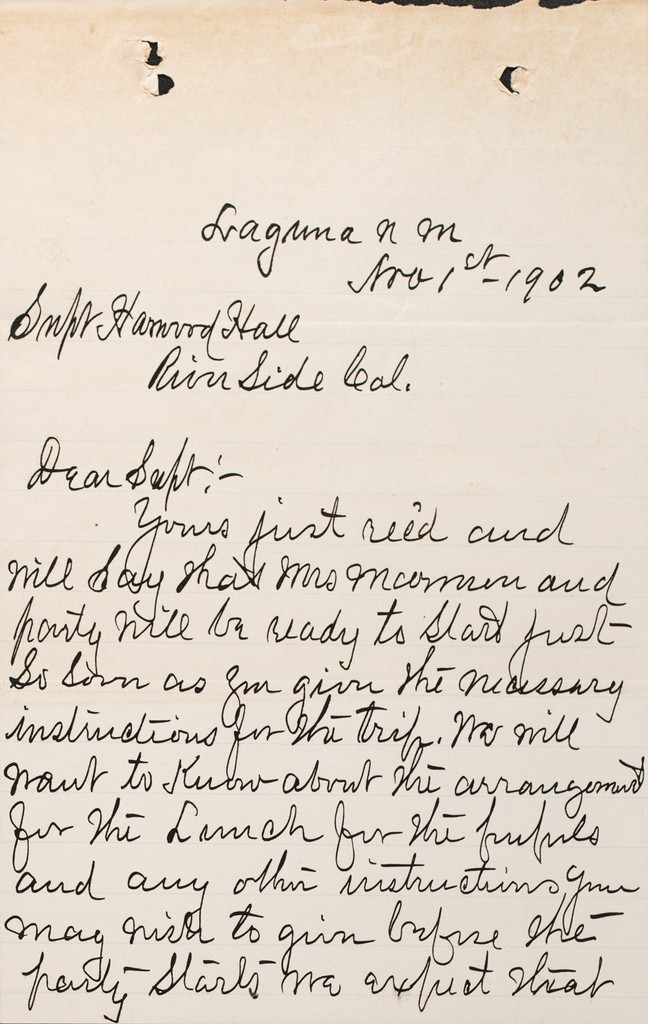 Laguna N M
Nov 1st-1902
Supt Harwood Hall
River Side Cal.
Dear Supt:-
Yours just rec'd and
will say that Mrs and
party will be ready to start just
so soon as you give the necessary
instructions for the trip. We will
want to know about the arrangement
for the Lunch for the pupils
and any other instructions you
may wish to give before the
party starts we expect that